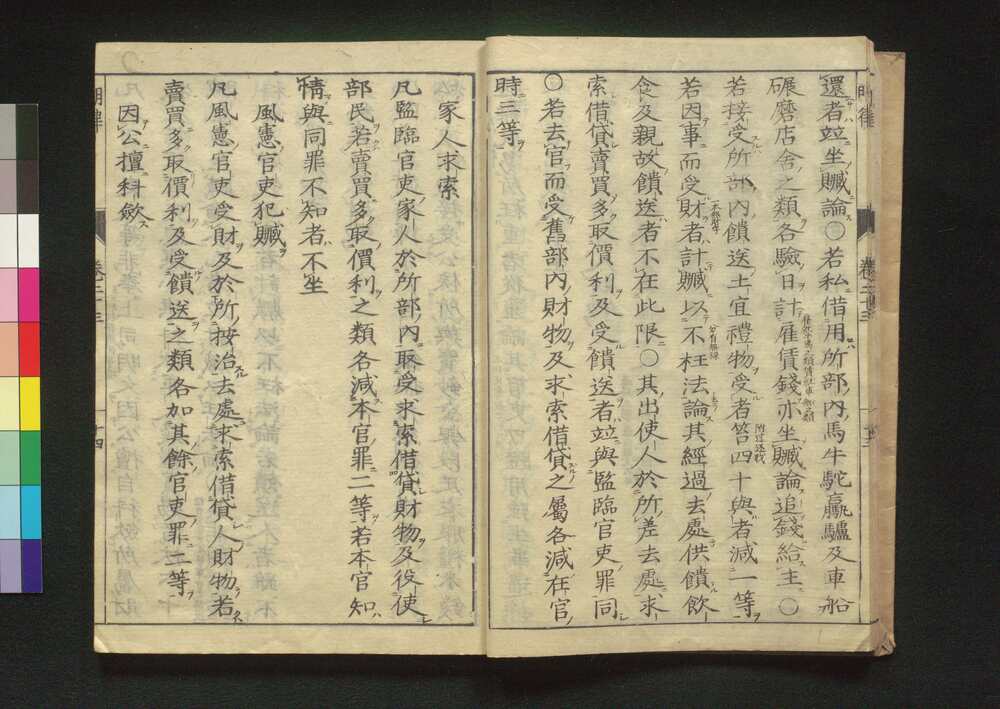 還者竝坐贓論○若私借用所部内馬牛駝驘驢及車船
碾磨店舍之類各驗日計雇賃錢亦坐贓論追錢給主○
若接受所部内饋送土宜禮物受者笞四十與者減一等
若因事而受財者計贓以不枉法論其經過去處供饋飲
食及親故饋送者不在此限○其出使人於所差去處求
索借貸賣買多取價利及受饋送者竝與監臨官吏罪同
○若去官而受舊部内財物及求索借貸之屬各減在官
時三等
明律 卷二十三 十四
家人求索
凡監臨官吏家人於所部内取受求索借貸財物及役使
部民若賣買多取價利之類各減本官罪二等若本官知
情與同罪不知者不坐
風憲官吏犯贓
凡風憲官吏受財及於所按治去處求索借貸人財物若
賣買多取價利及受饋送之類各加其餘官吏罪二等
因公擅科斂